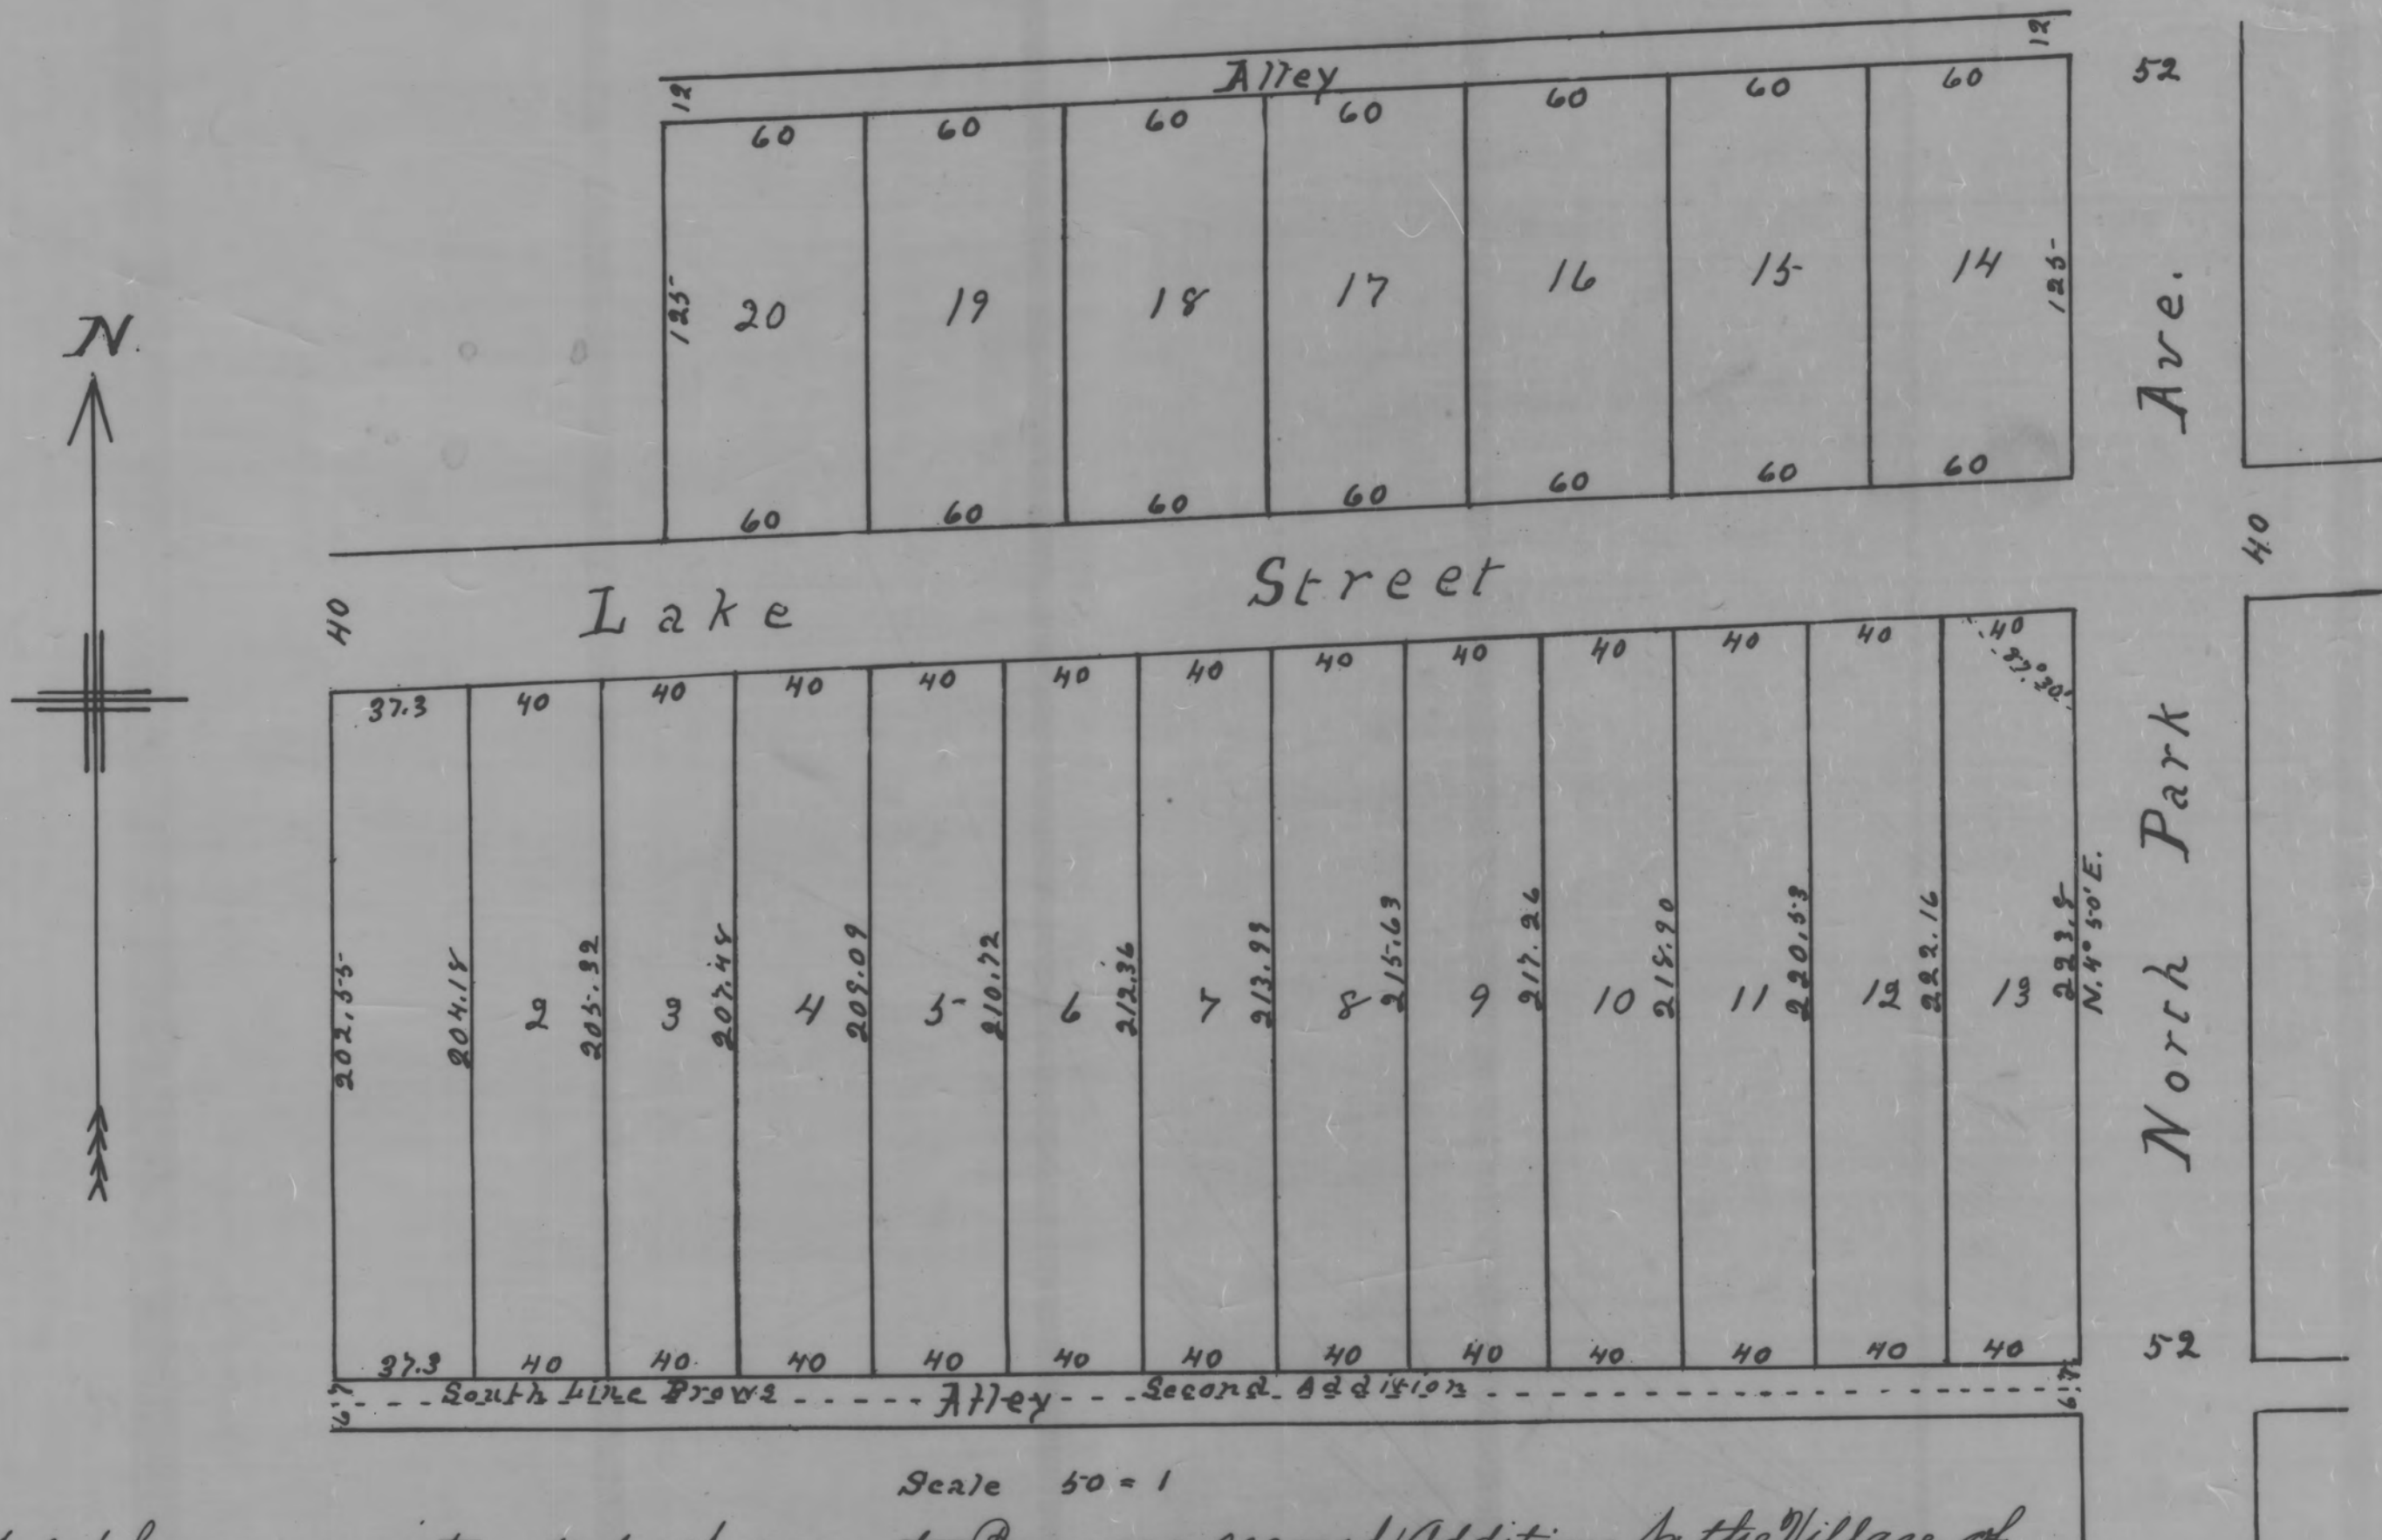 12
Alley
12
52
60 60 60 60 60 60 60
N.
125 20 19 18 17 16 15 14 125
Ave.
60 60 60 60 60 60 60
40
Lake Street
40
37.3 40 40 40 40 40 40 40 40 40 40 40 40
87° 30'
202.55 204.18 2 205.82 3 207.48 4 209.09 5 210.72 6 212.36 7 213.99 8 215.63 9 217.26 10 218.90 11 220.53 12 222.16 13 223.8
N. 4° 50' E.
North Park
37.3 40 40 40 40 40 40 40 40 40 40 40 40
52
South Line Brows Alley Second Addition
Scale 50 = 1
second Addition to the Village of